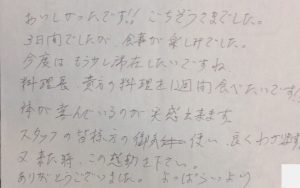 おいしかったです!! ごちそうさまでした。
3日間でしたが、食事が楽しみでした。
今度はもう少し滞在したいですね
料理長、貴方の料理を1週間食べたいです!
体が喜んでいるのが実感出来ます
スタッフの皆様方の御 使い、良くわかります
又来た時、この感動を下さい。
ありがとうございました。 よっぱらいより